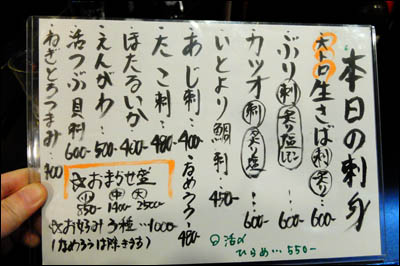 本日の刺身
大トロ生さば 刺 炙り … 600-
ぶり 刺 炙り塩 … 600-
カツオ 刺 炙り塩 … 600-
いとより鯛刺 450-
あじ刺… 400- なめろう 480-
たこ刺… 480-
ほたるいか… 400
えんがわ… 500-
活つぶ貝刺 600-
ねぎとろつまみ… 400
☆おまかせ盛
小 850- 中 1400- 大 2500-
☆お好み3種…1000-
(なめろうは除きます)
活〆
ひらめ… 550-